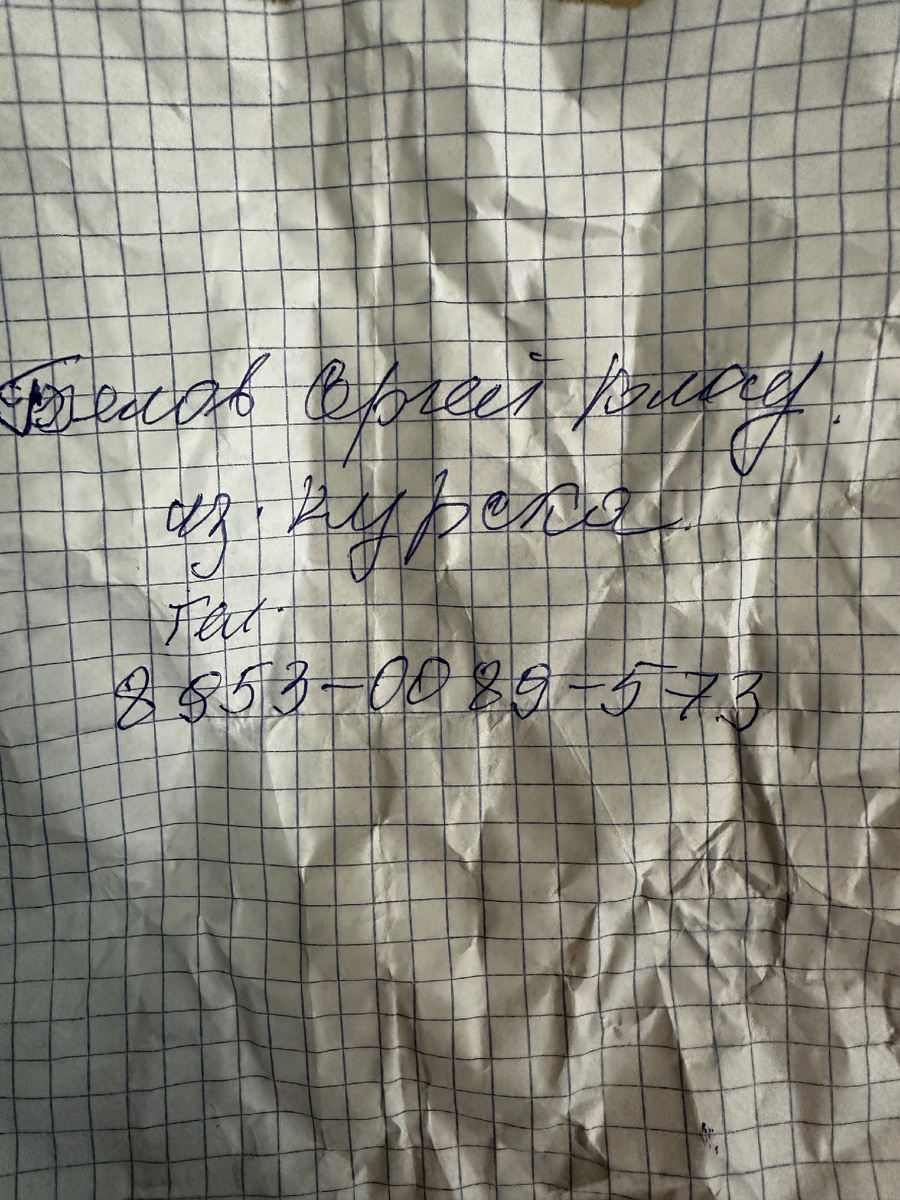 Белов Сергей
из. Курска.
тел.
8 953-0089-573